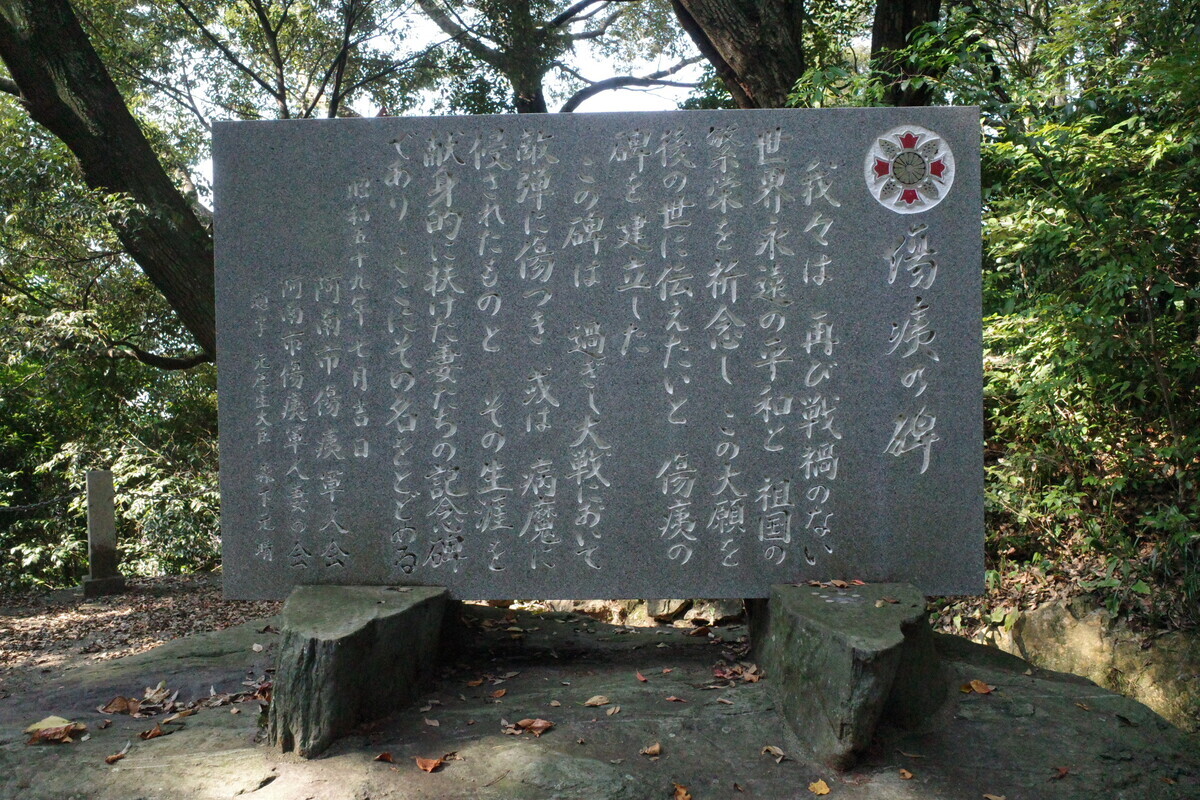 傷痍の碑
我々は 再び戦禍のない
世界永遠の平和と 祖国の
繁栄を祈念し この大願を
後の世に伝えたいと 傷痍の
碑を建立した
この碑は 過ぎし大戦において
敵弾に傷つき 或は 病魔に
侵されたものと その生涯を
献身的に扶けた妻たちの記念碑
であり ここにその名をとどめる
昭和五十九年七月吉日
阿南市傷痍軍人会
阿南市傷痍軍人妻の会
厚生大臣